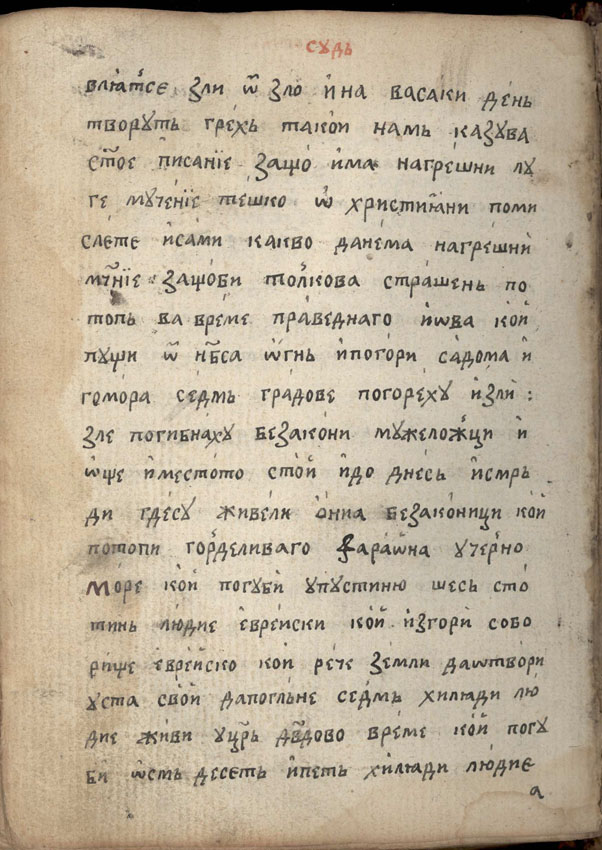 судь
влꙗ́тⷭ҇сѐ зли ѿ зло̀ и҆на васаки де́нь
творуть гре́хь такои намь казува
ст҃ое пи́саниїе защо̀ и҆ма нагрешни лу
ге му́че́нїе те́шко ѡ҆ христиꙗни поми
слѐте и҆сами какво данѐма нагрешни
мч҃нїе защо́би толкова стра́шень по
топь ва вре́ме пра́веднаго и҆ѡва кои̏
пущи ѿ нб҃са ѡ҆гнь и҆погори са́дома и҆
гомора се́дмь гра́дове погоре́ху и҆зли :
зле погибнаху безако́ни мужело́жци и҆
ѡ҆ще и҆местото стои̏ и҆до днесь и҆смрь
ди где́су живе́ли ѻ҆ниа безако́ници кои̏
потопи го́рделиваго ѳараѡ̀на у че́рно
море кои̏ погубѝ у пустиню шесь сто̀
тинь лю́дие є҆вре́иски кои̏ и҆згорѝ собо
рище є҆вре́йско кои рѐче зе́мли даѿтво́ри
уста свои̏ дапогльне се́дмь хилꙗди лю́
дие живи у цр҃ь дв҃дово вре́ме кои̏ погу
бѝ ѡ҆смь десе́ть и҆петь хилꙗди лю́дие
а